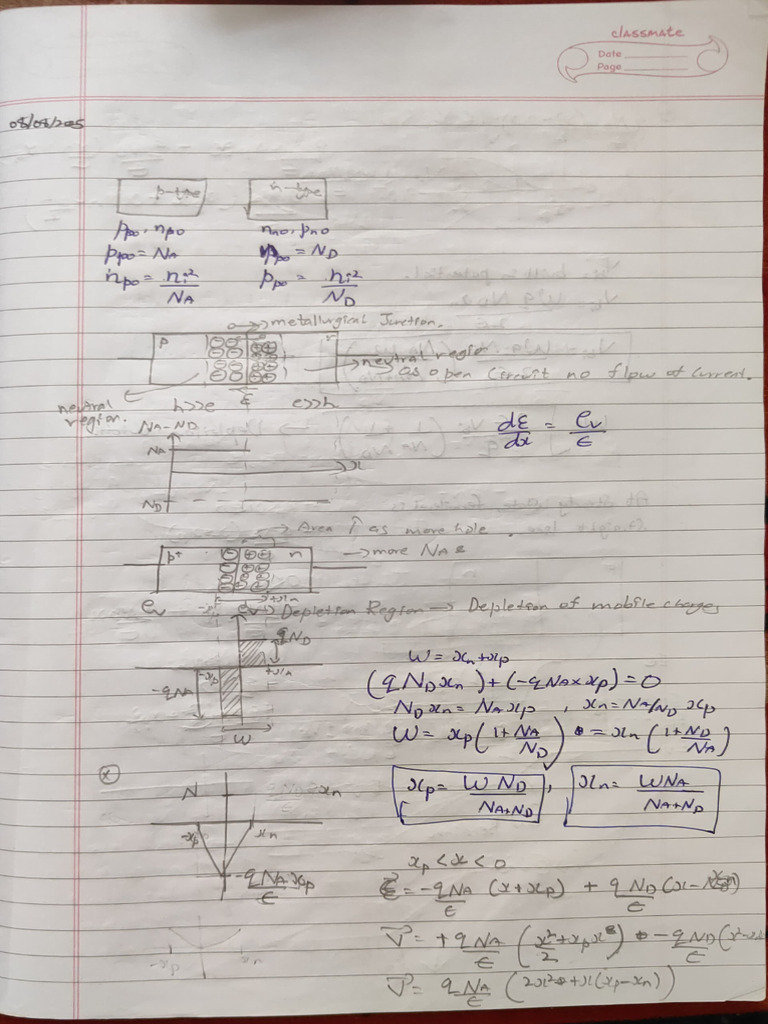 classmate
Date
Page
08/08/2025
p-type n-type
Ppo, npo nno, pno
Ppo = NA Ppo = ND
npo = ni²/NA Ppo = ni²/ND
→ metallurgical Junction.
p n
→ neutral region.
as open circuit no flow of current.
neutral region.
h>>e e>>h
NA-ND
dε/dx = ρv/ε
NA
x
ND
→ Area ↑ as more hole.
p+ n → more NA
ρv → Depletion Region → Depletion of mobile charges
qND
-xp +xn
-qNA
W
W = xn+xp
(qND xn) + (-qNA × xp) = 0
ND xn = NA xp , xn = NA/ND xp
W = xp (1+NA/ND) = xn (1+ND/NA)
xp = W ND/NA+ND , xn = WNA/NA+ND
N xn
-xp xn
-qNA xp/ε
xp < x < 0
ε = -qNA/ε (x+xp) + qND/ε (x-
V = +qNA/ε (x²/2 + xp x) - qND/ε (x²-
V = qNA/ε (2x² + x(xp-xn))